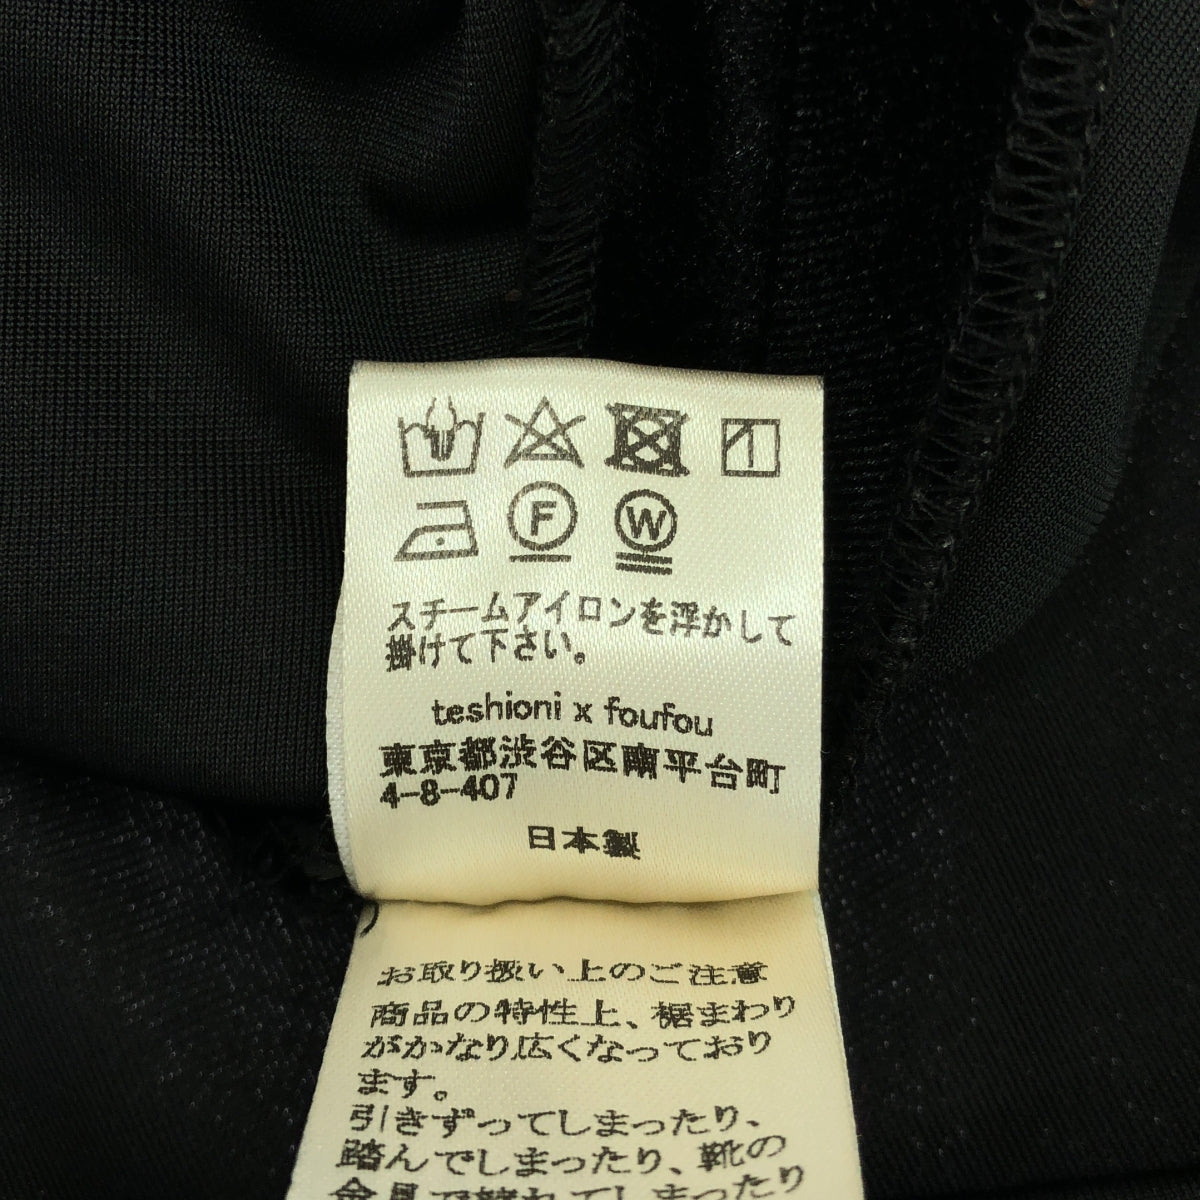 F W
スチームアイロンを浮かして
掛けて下さい。
teshioni x foufou
東京都渋谷区南平台町
4-8-407
日本製
お取り扱い上のご注意
商品の特性上、裾まわり
がかなり広くなっており
ます。
引きずってしまったり、
踏んでしまったり、靴の
金具で擦れてしまったり